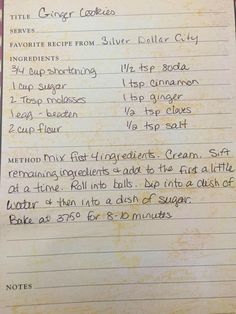 TITLE Ginger Cookies
SERVES
FAVORITE RECIPE FROM Silver Dollar City
INGREDIENTS
3/4 cup shortening 1 1/2 tsp soda
1 cup sugar 1 tsp cinnamon
2 Tbsp molasses 1 tsp ginger
1 egg - beaten 1/2 tsp cloves
2 cup flour 1/2 tsp salt
METHOD Mix first 4 ingredients. Cream. Sift
remaining ingredients & add to the first a little
at a time. Roll into balls. Dip into a dish of
water & then into a dish of sugar.
Bake at 375° for 8-10 minutes
NOTES